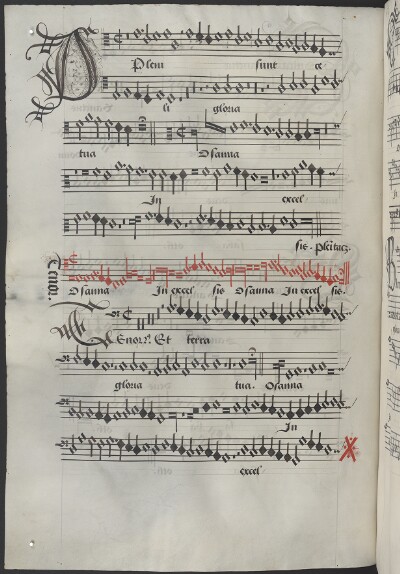 Pleni sunt ce
li gloria
tua Osanna
In excel
sis. Pleni
Osanna In excel sis Osanna In excel sis.
Tenor. Et terra
gloria tua. Osanna
In
excel